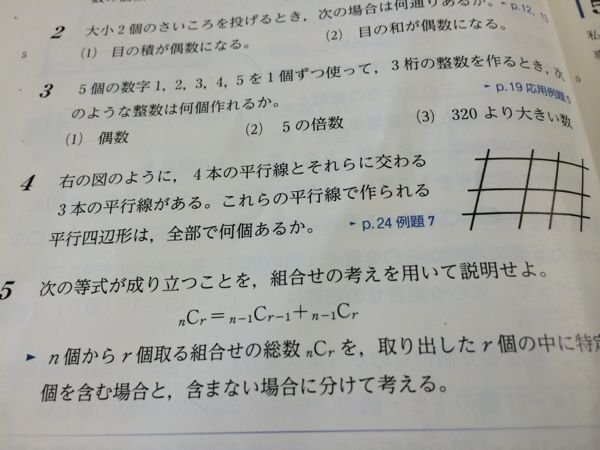 2 大小2個のさいころを投げるとき，次の場合は何通りあるか。 ►p.12, 13
(1) 目の積が偶数になる。 (2) 目の和が偶数になる。
5
3 5個の数字 1, 2, 3, 4, 5 を1個ずつ使って，3桁の整数を作るとき，次
のような整数は何個作れるか。 ►p.19 応用例題5
(1) 偶数 (2) 5の倍数 (3) 320 より大きい数
4 右の図のように，4本の平行線とそれらに交わる
3本の平行線がある。これらの平行線で作られる
平行四辺形は，全部で何個あるか。 ►p.24 例題7
5 次の等式が成り立つことを，組合せの考えを用いて説明せよ。
nCr = n−1Cr−1 + n−1Cr
► n個からr個取る組合せの総数 nCr を，取り出したr個の中に特定
個を含む場合と，含まない場合に分けて考える。